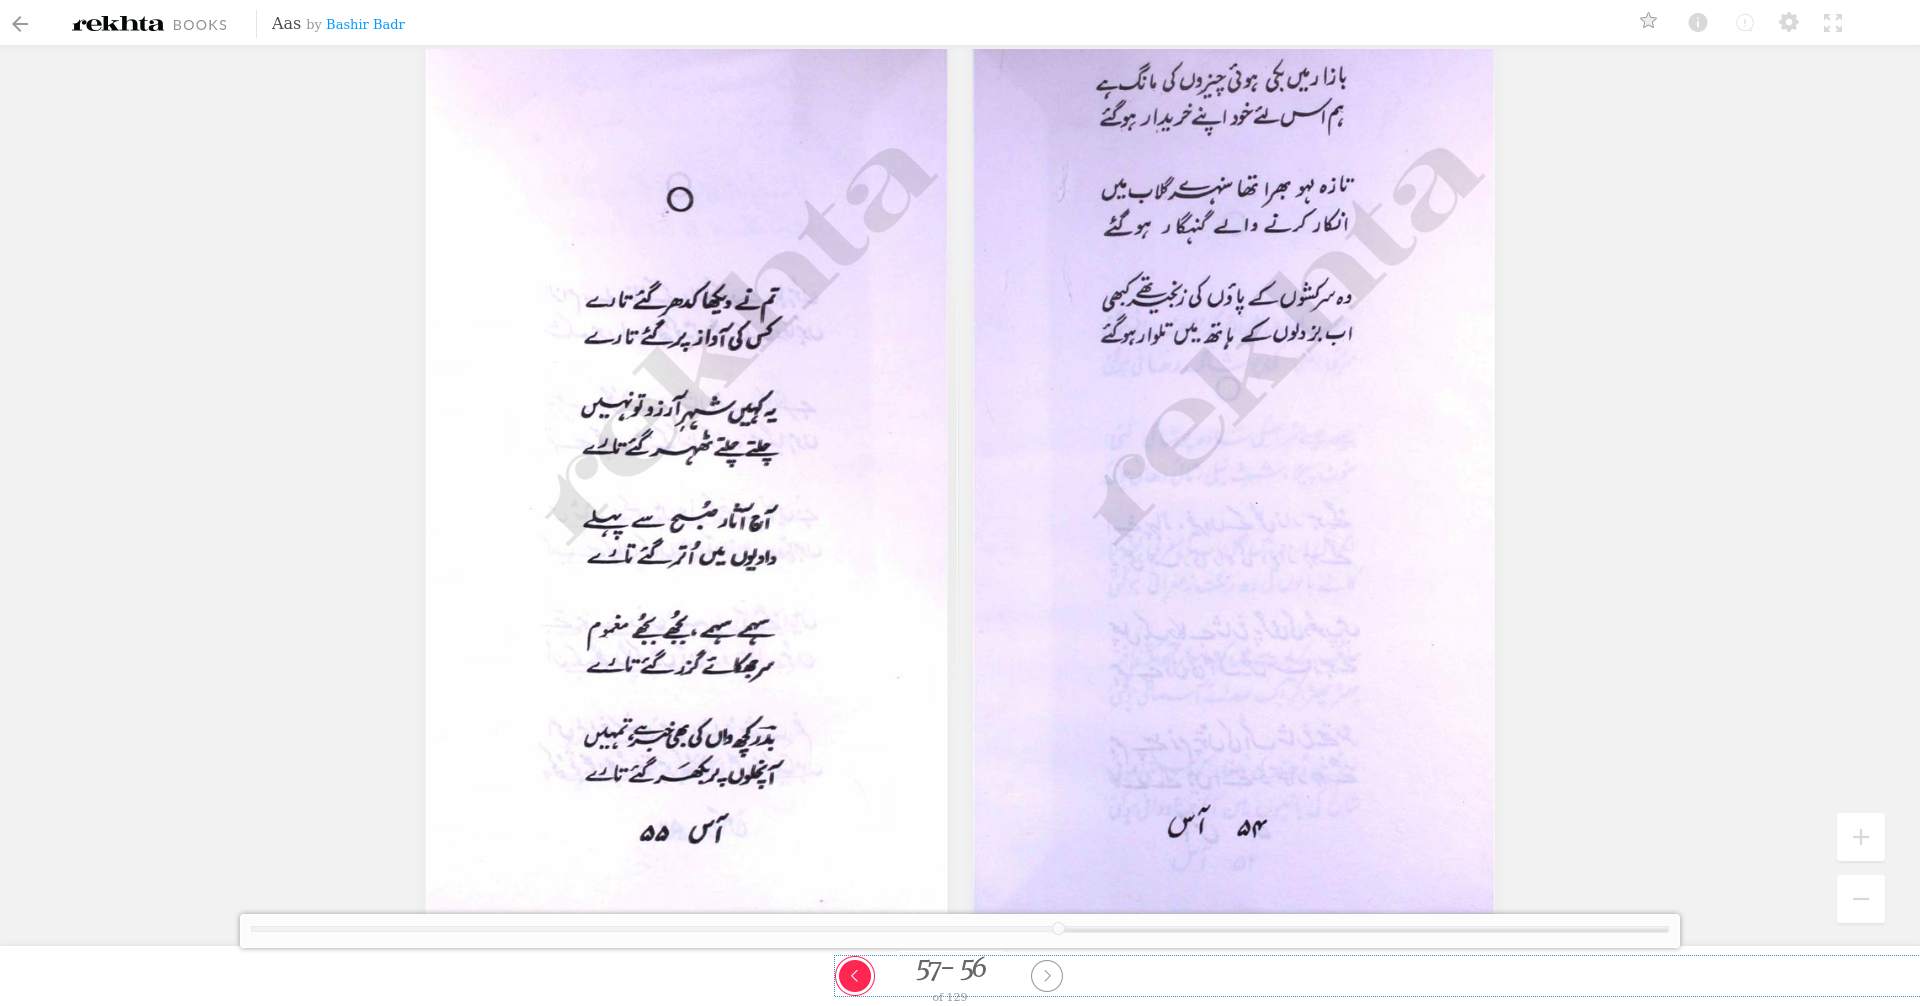 rekhta BOOKS Aas by Bashir Badr
بازار میں بکی ہوئی چیزوں کی مانگ ہے
ہم اس لئے خود اپنے خریدار ہوگئے
تازہ لہو بھرا تھا سنہرے گلاب میں
انکار کرنے والے گنہگار ہوگئے
وہ سرکشوں کے پاؤں کی زنجیر تھے کبھی
اب بزدلوں کے ہاتھ میں تلوار ہوگئے
۵۴ آس
تم نے دیکھا کدھر گئے تارے
کس کی آواز پر گئے تارے
یہ کہیں شہرِ آرزو تو نہیں
چلتے چلتے ٹھہر گئے تارے
آج آثار صُبح سے پہلے
وادیوں میں اُتر گئے تارے
سہمے سہمے، بجُھے بجُھے مغموم
سر جھکائے گزر گئے تارے
بدؔر کچھ واں کی بھی خبر ہے تمہیں
آنچلوں پہ بکھر گئے تارے
آس ۵۵
rekhta
rekhta
57- 56
of 129